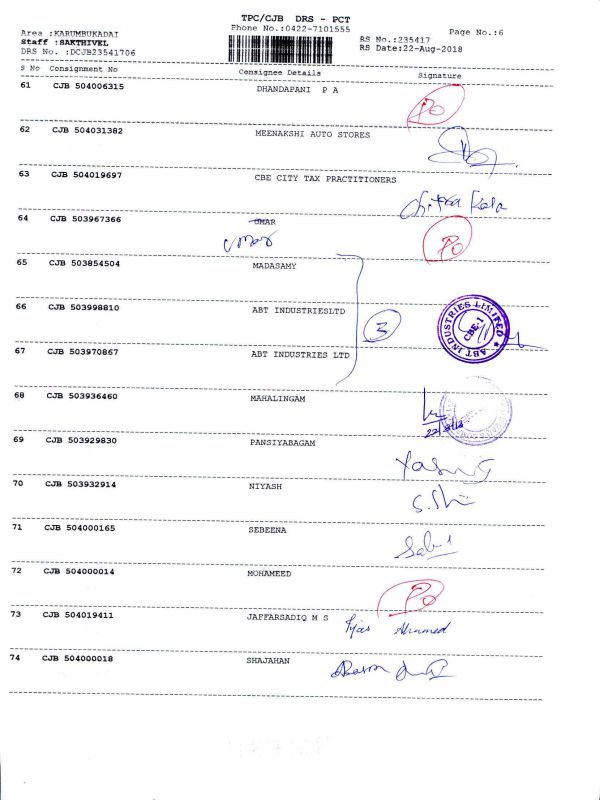 TPC/CJB DRS - PCT
Phone No.:0422-7101555
Page No.:6
Area :KARUMBUKADAI
Staff :SAKTHIVEL
DRS No. :DCJB23541706
RS No.:235417
RS Date:22-Aug-2018
S No Consignment No Consignee Details Signature
61 CJB 504006315 DHANDAPANI P A
PO
62 CJB 504031382 MEENAKSHI AUTO STORES
63 CJB 504019697 CBE CITY TAX PRACTITIONERS
Chitra Kala
64 CJB 503967366 UMAR
Umar PO
65 CJB 503854504 MADASAMY
66 CJB 503998810 ABT INDUSTRIESLTD
3
ABT INDUSTRIES LIMITED
CBE-1
67 CJB 503970867 ABT INDUSTRIES LTD
68 CJB 503936460 MAHALINGAM
69 CJB 503929830 PANSIYABAGAM
70 CJB 503932914 NIYASH
71 CJB 504000165 SEBEENA
72 CJB 504000014 MOHAMEED
PO
73 CJB 504019411 JAFFARSADIQ M S
Ahamed
74 CJB 504000018 SHAJAHAN